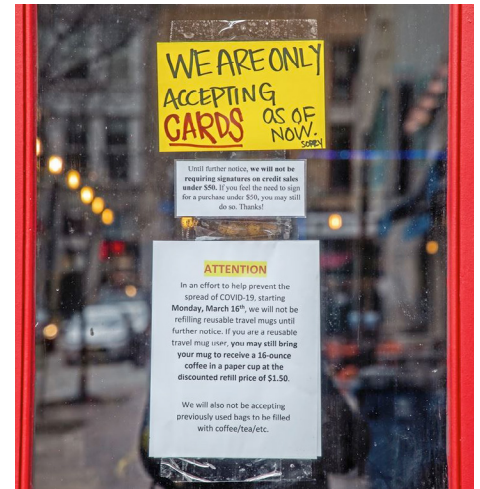 WE ARE ONLY
ACCEPTING
CARDS AS OF
NOW.
SORRY
Until further notice, we will not be
requiring signatures on credit sales
under $50. If you feel the need to sign
for a purchase under $50, you may still
do so. Thanks!
ATTENTION
In an effort to help prevent the
spread of COVID-19, starting
Monday, March 16th, we will not be
refilling reusable travel mugs until
further notice. If you are a reusable
travel mug user, you may still bring
your mug to receive a 16-ounce
coffee in a paper cup at the
discounted refill price of $1.50.
We will also not be accepting
previously used bags to be filled
with coffee/tea/etc.